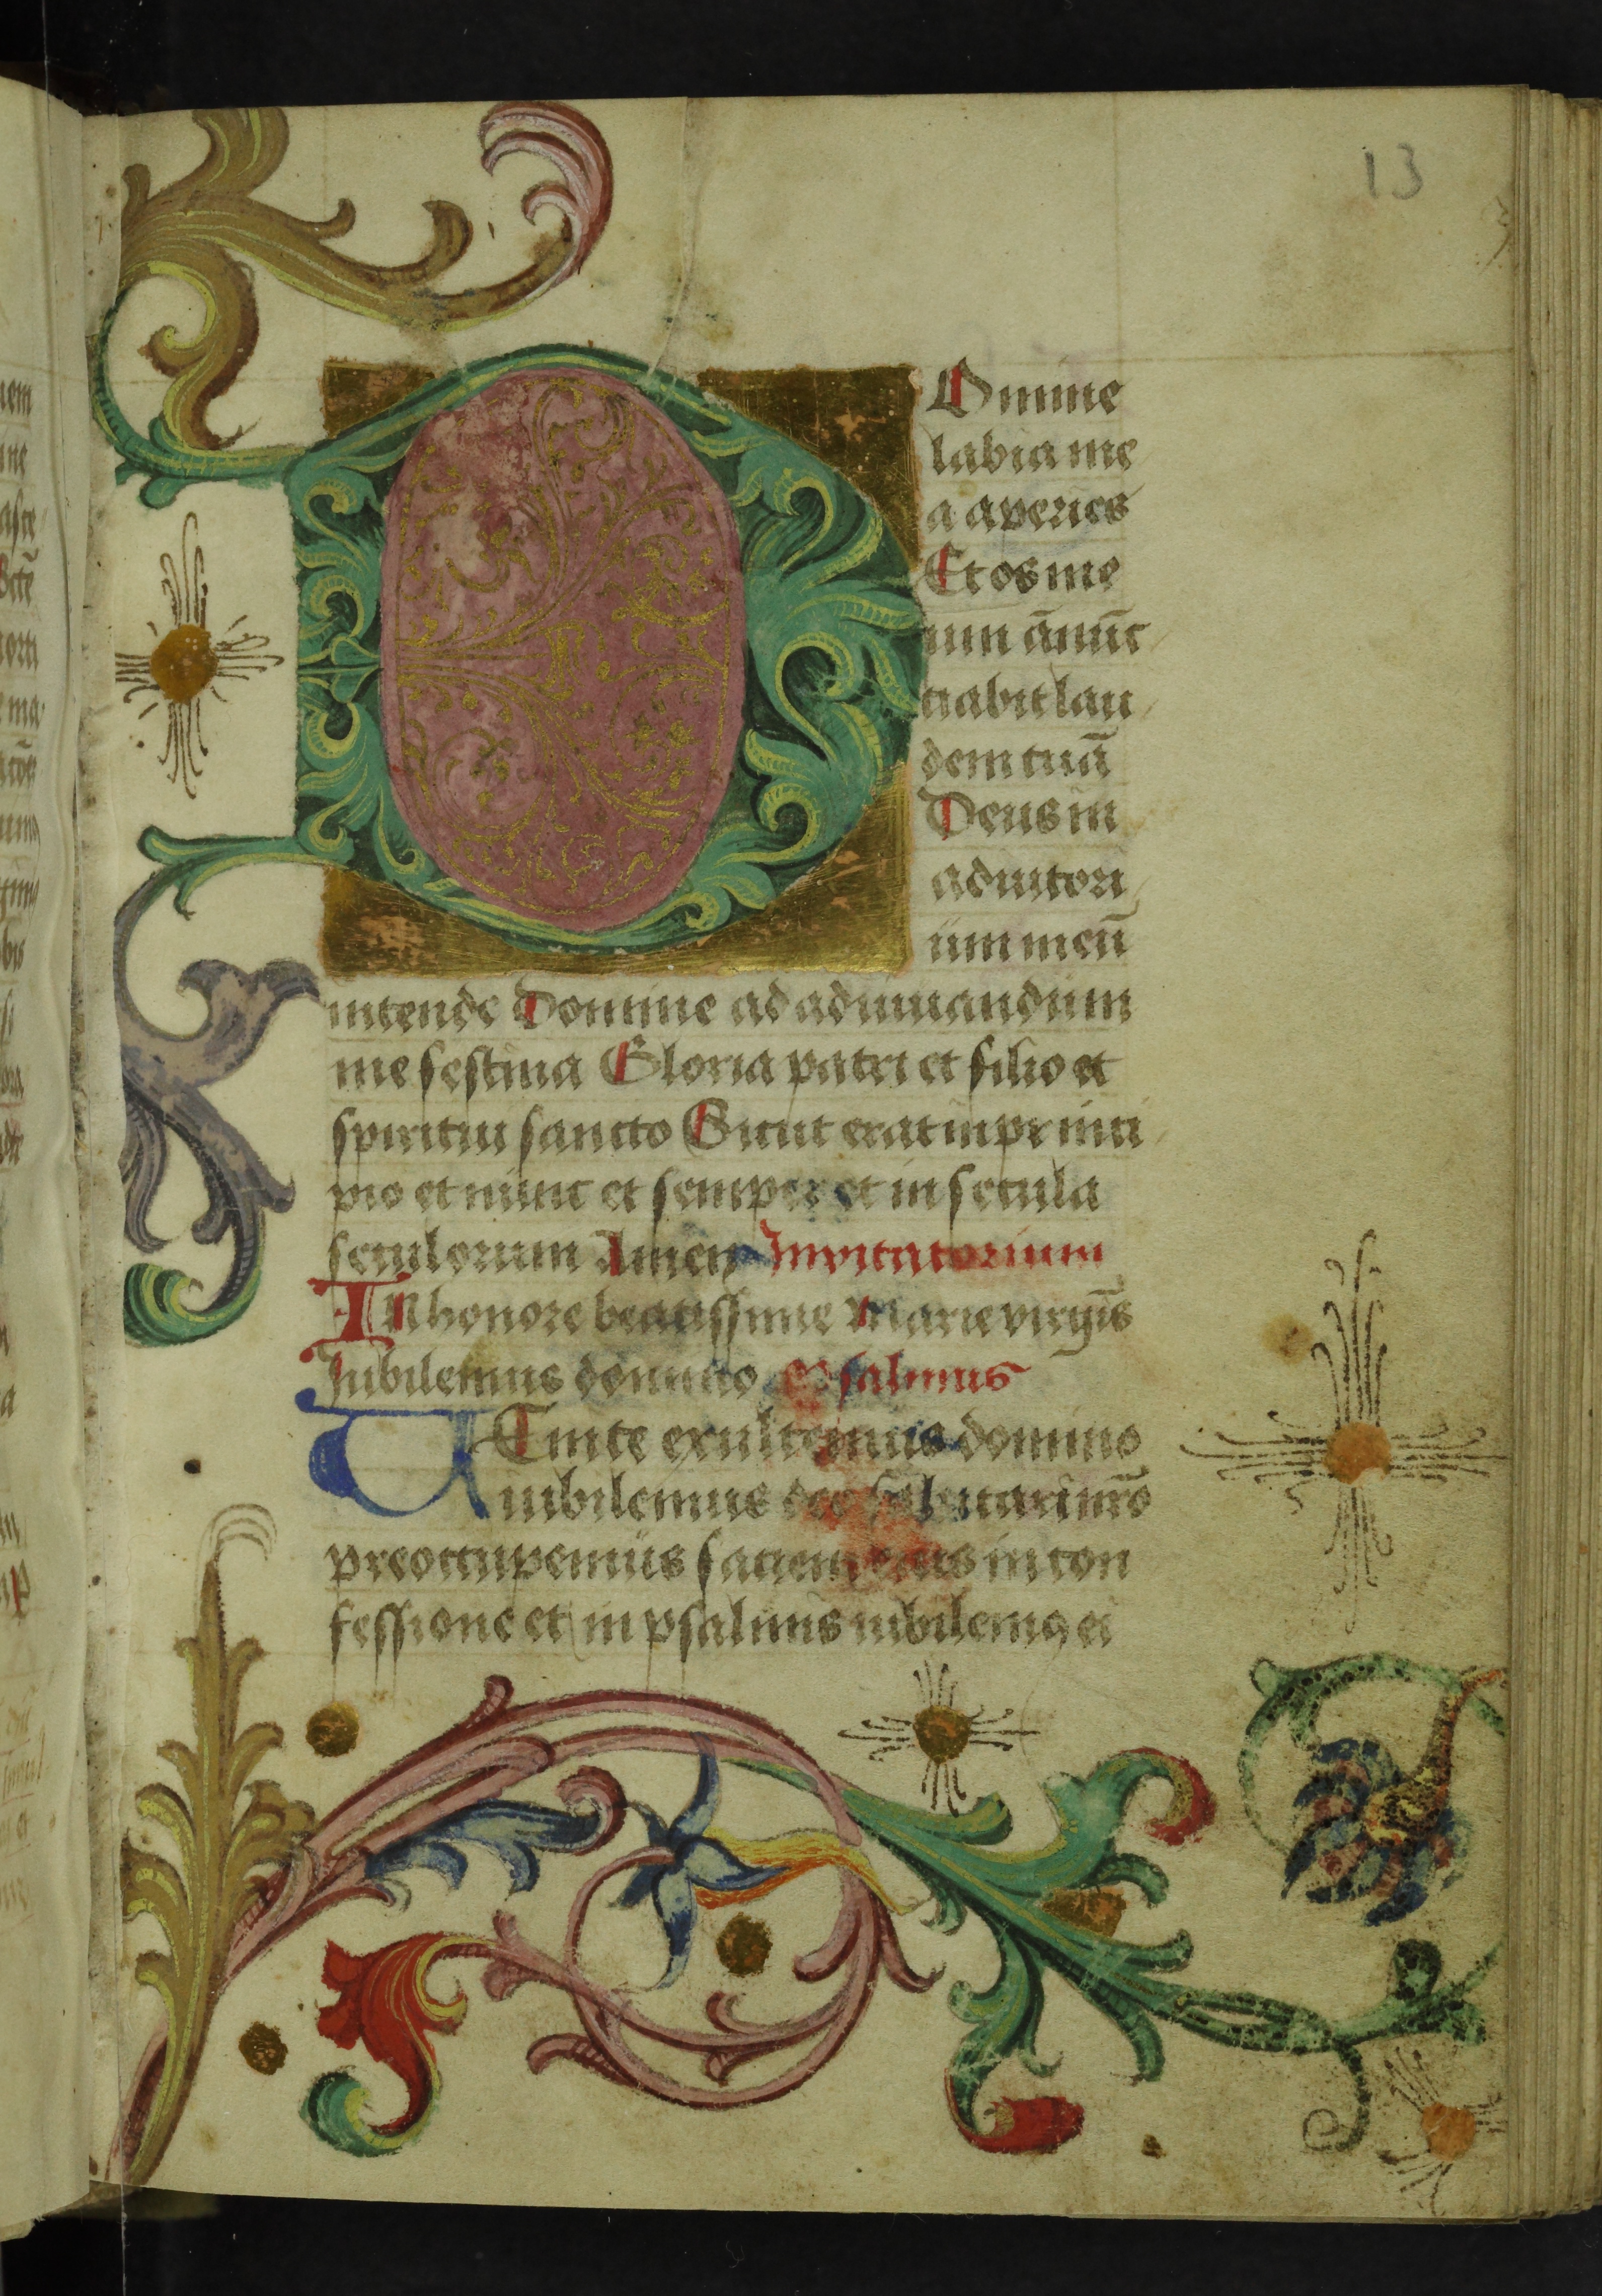 13
DOmine
labia me
a aperies
Et os me
um ānūc
tiabit lau
dem tuā
Deus in
adiutori
um meū
intende Domine ad adiuuandum
me festina Gloria patri et filio et
spiritui sancto Sicut erat in princi
pio et nunc et semper et in secula
seculorum Amen Invitatorium
IN honore beatissime Marie virgīs
Iubilemus domino Psalmus
UEnite exultemus domino
iubilemus deo salutari nrō
preoccupemus faciem eius in con
fessione et in psalmis iubilemꝰ ei